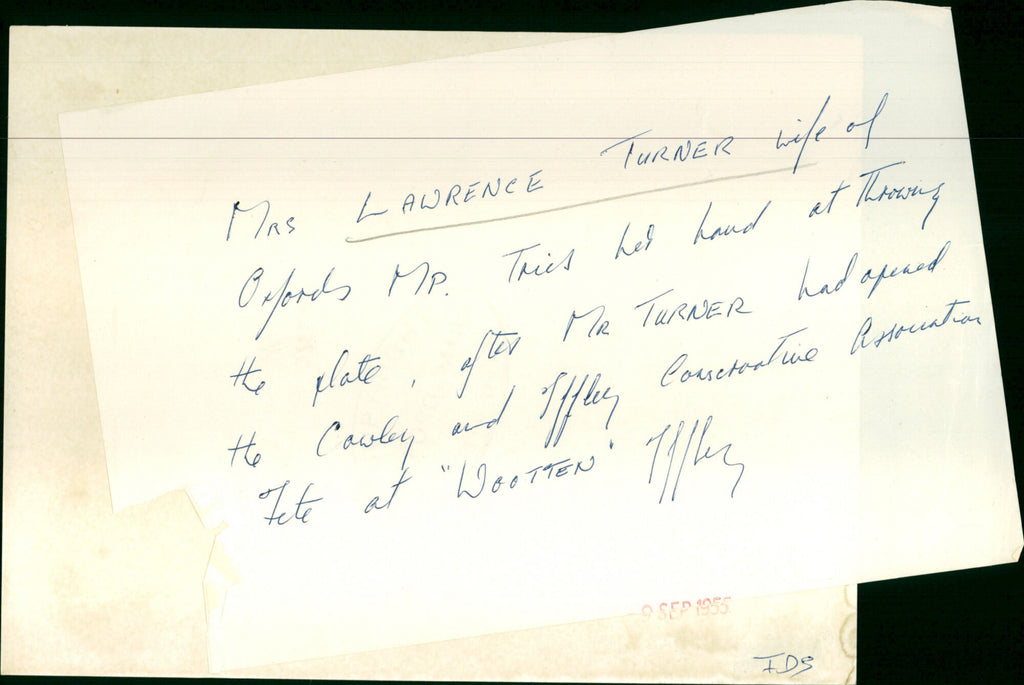 Mrs LAWRENCE TURNER wife of
Oxfords MP. Tries her hand at Throwing
the plate, after MR TURNER had opened
the Cowley and Iffley Conservative Association
Fete at "WOOTTEN" Iffley
9 SEP 1955
IDS